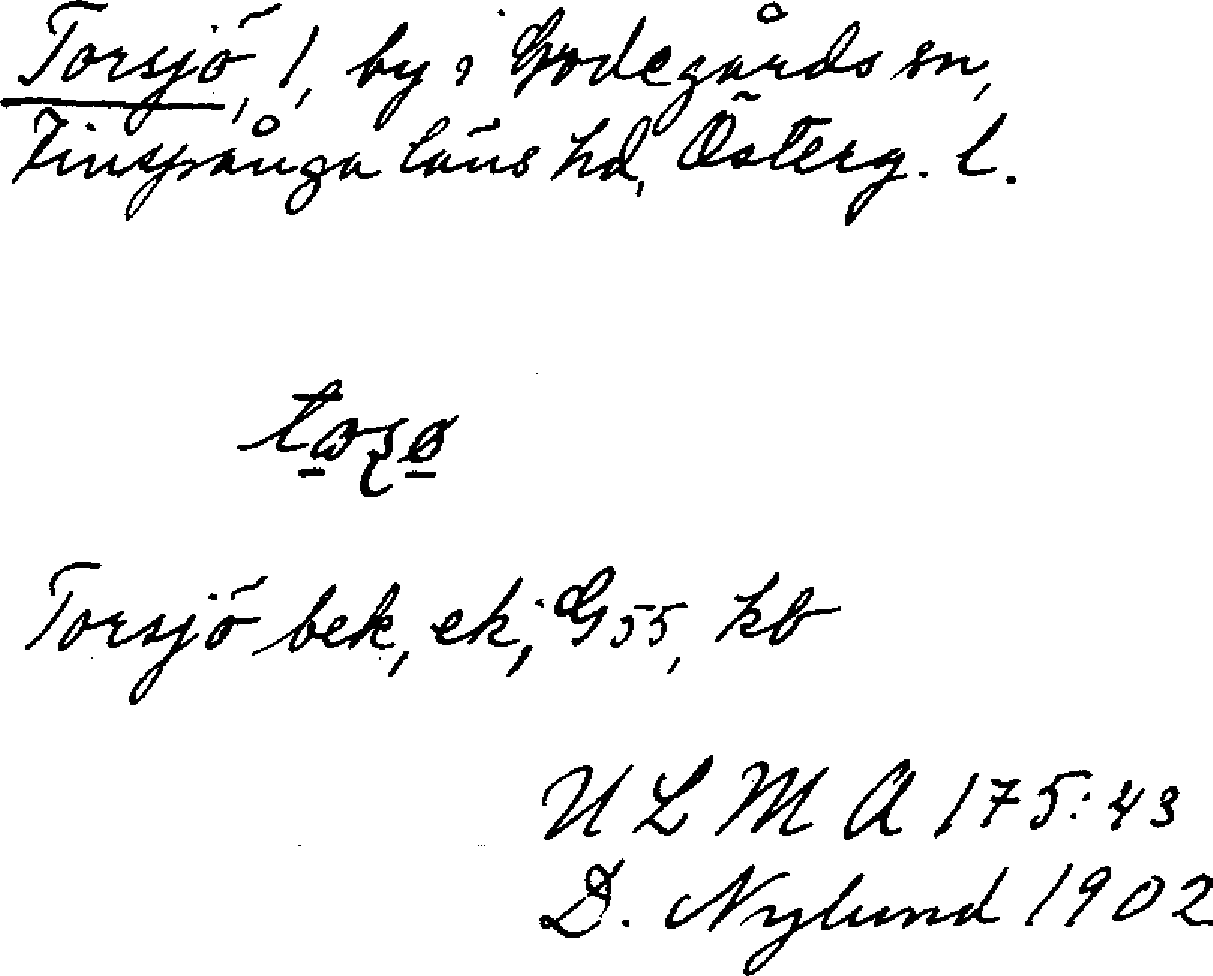 Torsjö, 1, by i Godegårds sn,
Finspånga läns hd, Österg. l.
Torsjö bek, ek, G55, kb
ULMA 175:43
D. Nylund 1902